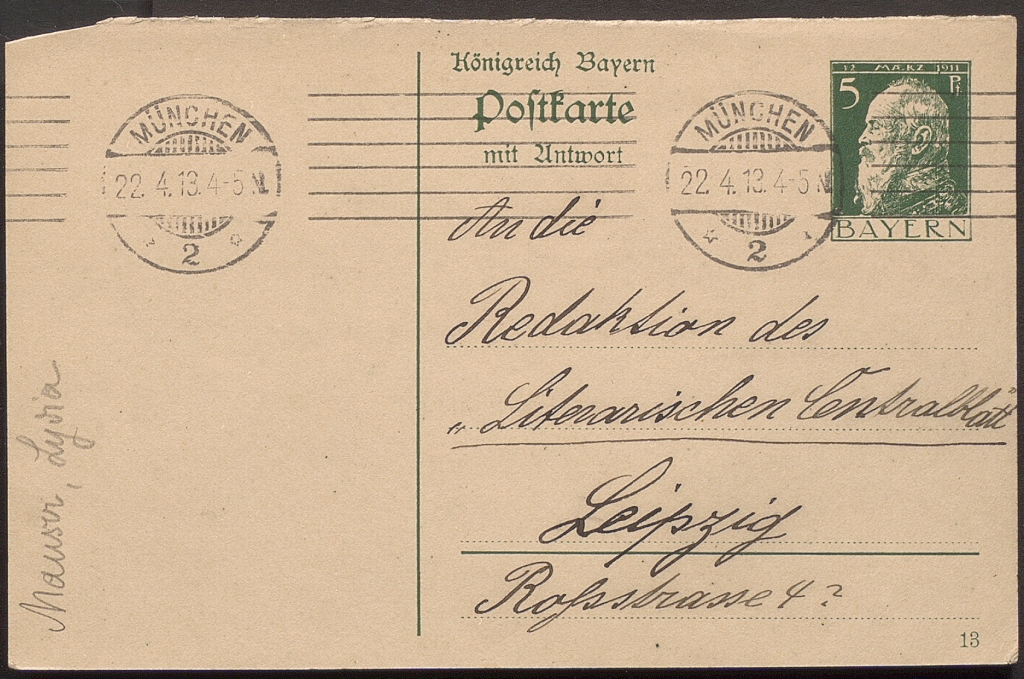 Königreich Bayern
Postkarte
mit Antwort
12 MÆRZ 1911
5 Pf
BAYERN
MÜNCHEN
22. 4. 13. 4-5 N
2
MÜNCHEN
22. 4. 13. 4-5 N
2
An die
Redaktion des
„Literarischen Centralblatt"
Leipzig
Rossstrasse 4?
13
Mauser, Lydia